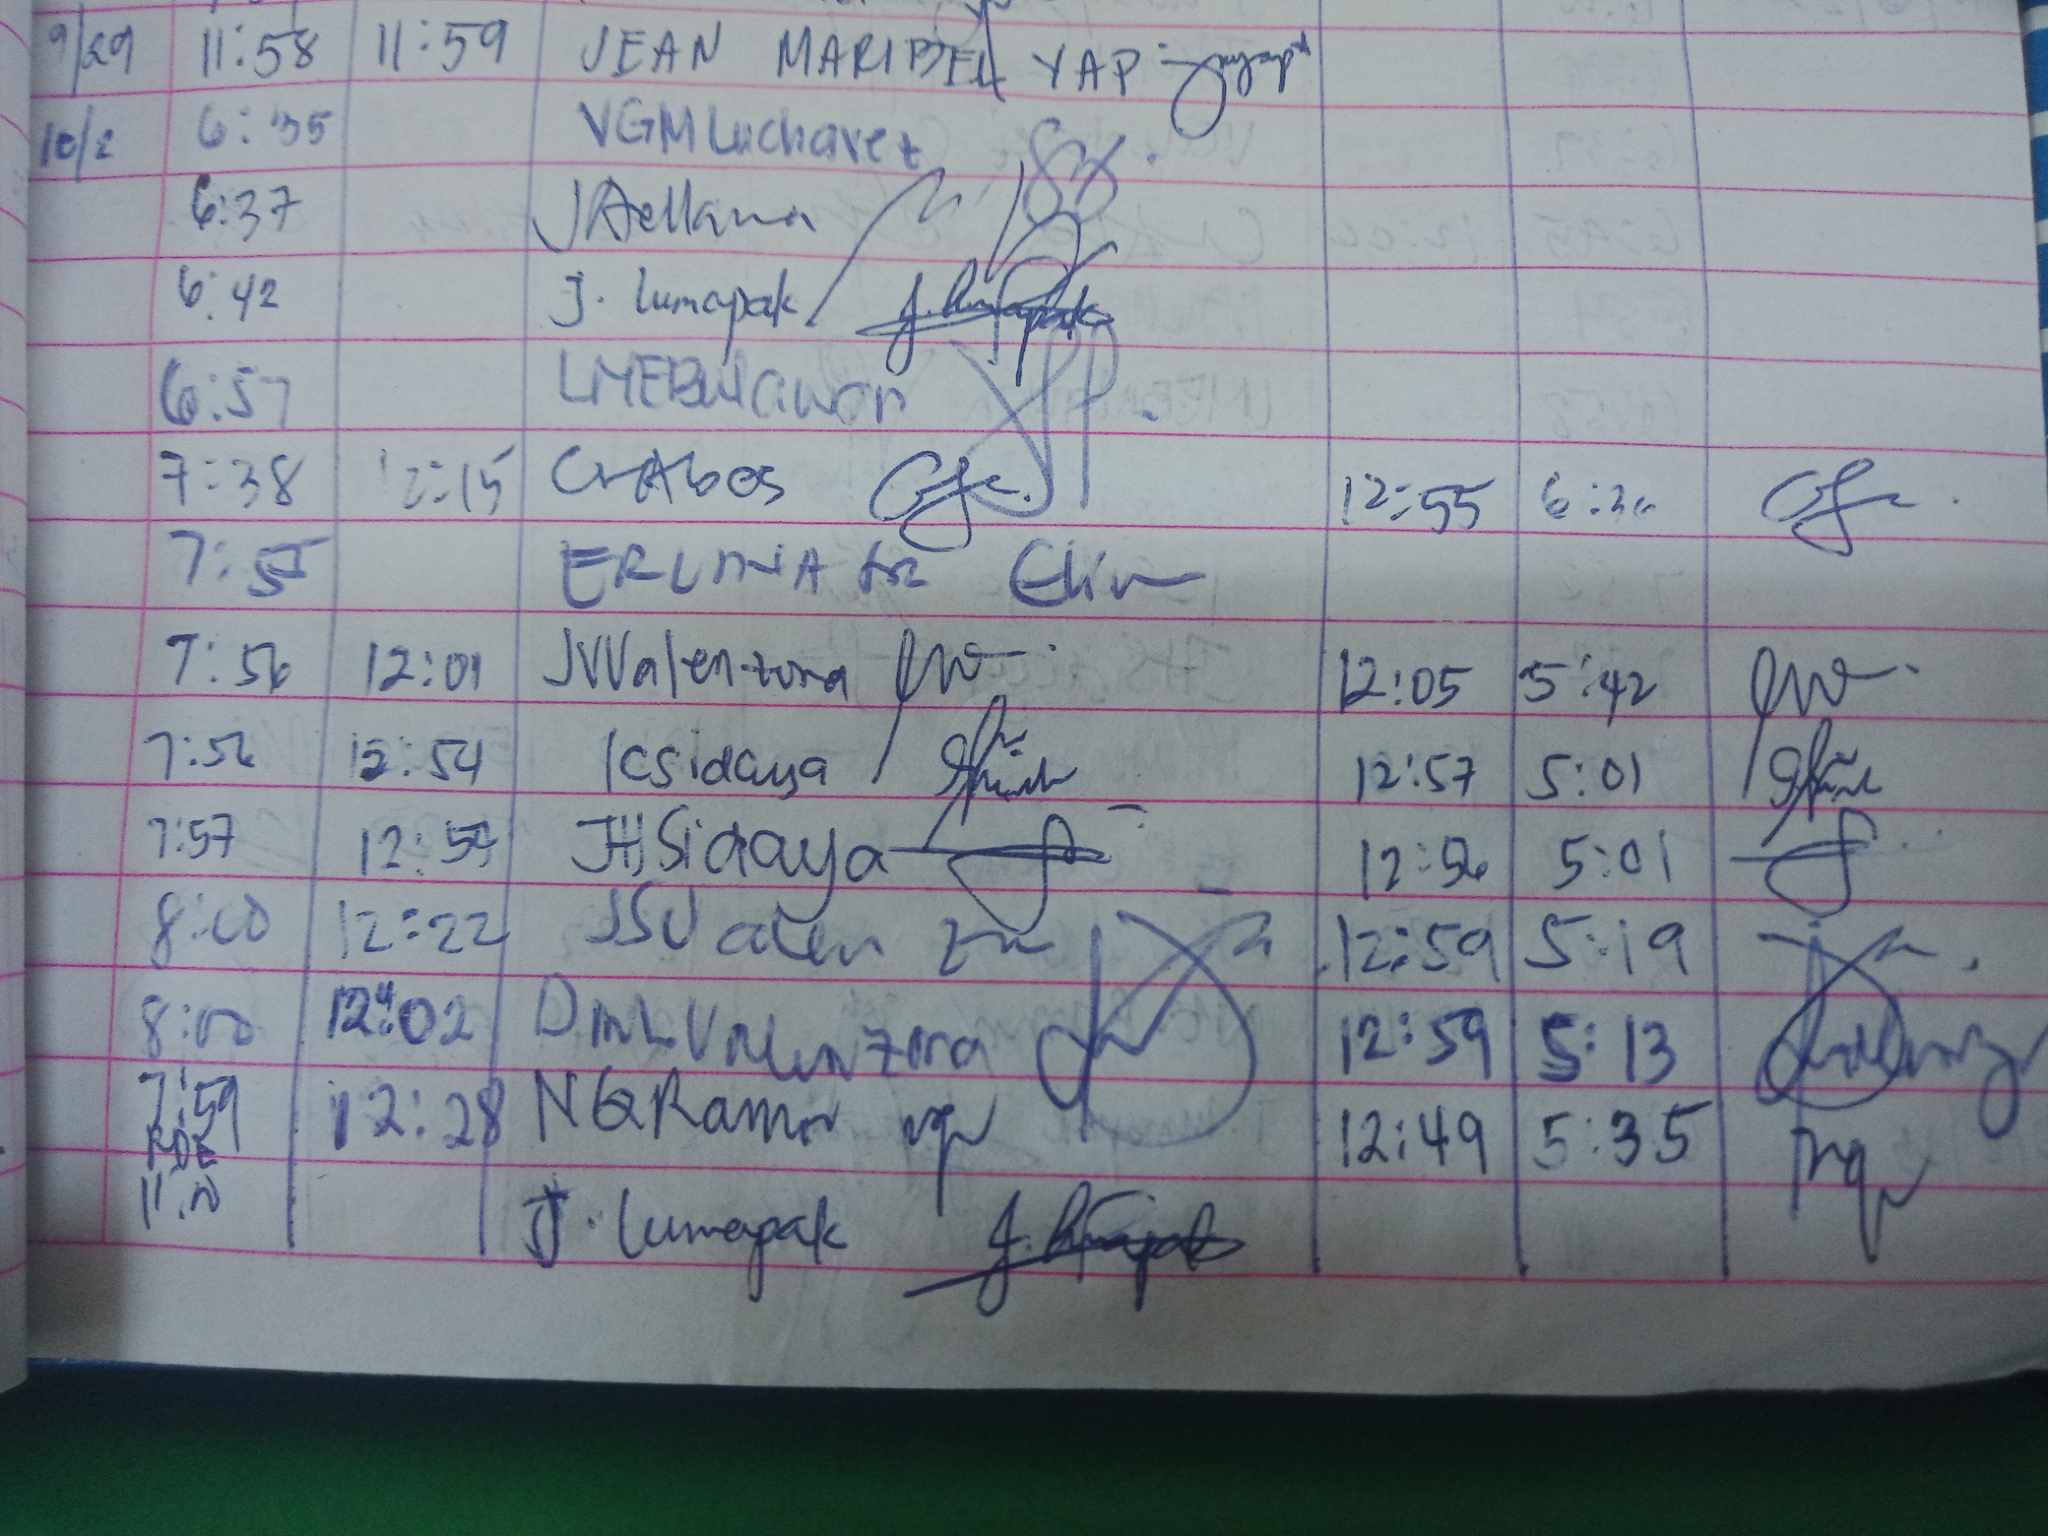 9/29 11:58 11:59 JEAN MARIBEL YAP
10/2 6:35 VGMLuchavez
6:37 JAellana
6:42 J. Lumapak J. Lumapak
6:57 LMEBulawan
7:38 12:15 CrAbos 12:55
7:55 ERLINIA
7:56 12:01 JVValenzona 12:05 5:42
7:56 12:54 ICSidaya 12:57 5:01
7:57 12:54 JHSidaya 12:56 5:01
8:00 12:22 JSValenzona 12:59 5:19
8:00 12:02 DMLValenzona 12:59 5:13
7:59 12:28 NGRamos 12:49 5:35
J. Lumapak J. Lumapak